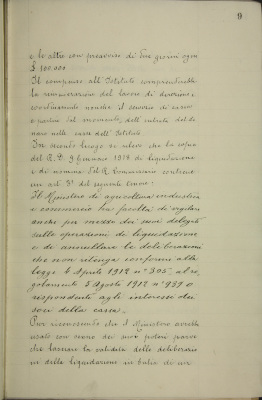 9
e le altre con preavviso di tre giorni ogni
£ 100.000
Il compenso all'Istituto comprenderebbe
la remunerazione del lavoro di direzione,
coordinamento nonché il servizio di cassa
e partire dal momento dell'entrata del de
naro nelle casse dell'Istituto.
In secondo luogo si rileva che la copia
del R. D. 9 Gennaio 1919 di liquidazione
e di nomina del R. Commissario contiene
un art. 3° del seguente tenore:
Il Ministero di agricoltura industria
e commercio ha facoltà di vigilare
anche per mezzo dei suoi delegati
sulle operazioni di liquidazione
e di annullare le deliberazioni
che non ritenga conformi alla
legge 6 Aprile 1912 n° 305, al re
golamento 5 Agosto 1912 n° 939 o
rispondenti agli interessi dei
soci della cassa.
Pur riconoscendo che il Ministero avrebbe
usato con mano dei suoi poteri parve
che lasciare la validità delle deliberazio
ni della liquidazione in balia di un